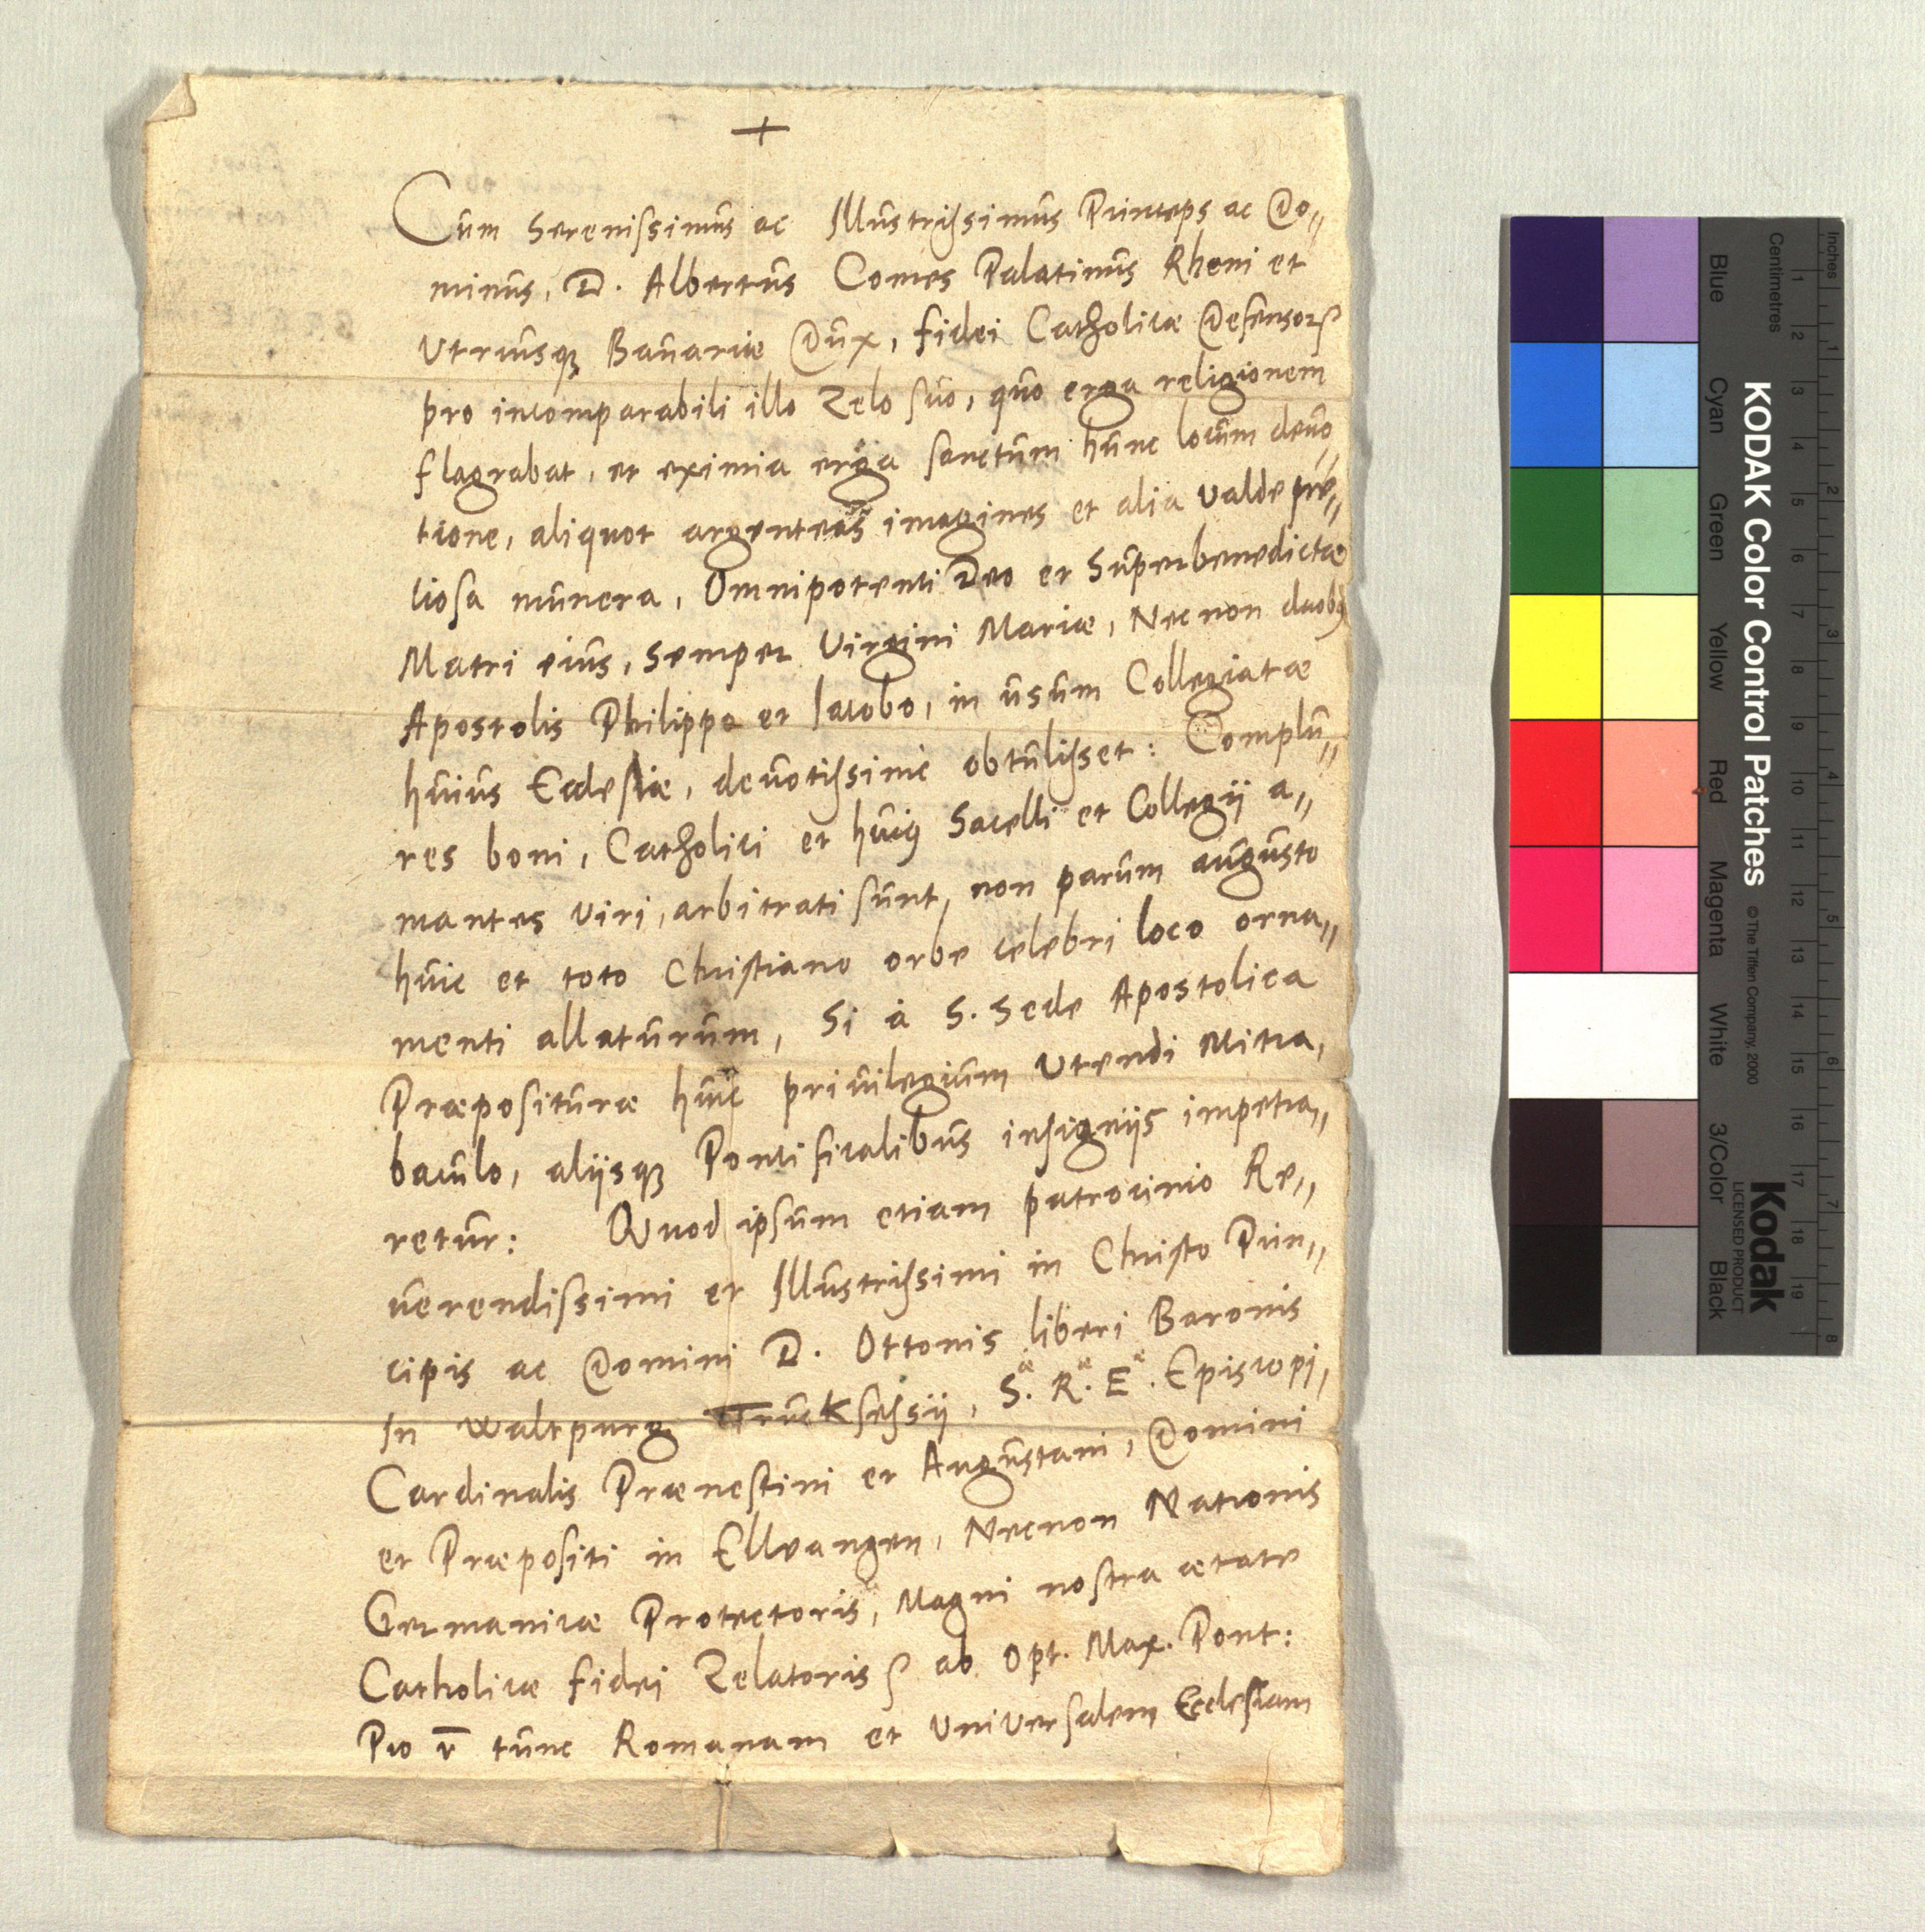 +
Cum Serenissimus ac Illustrissimus Princeps ac Do„
minus, D. Albertus Comes Palatinus Rheni et
Utriusq₃ Bauariæ Dux, fidei Catholicæ Defensor
pro incomparabili illo Zelo suo, quo erga religionem
flagrabat, et eximia erga sanctum hunc locum deuo„
tione, aliquot argenteas imagines et alia valde pre„
ciosa munera, Omnipotenti Deo et Superbenedictæ
Matri eius, semper Virgini Mariæ, Necnon duobꝰ
Apostolis Philippo et Iacobo, in usum Collegiatæ
huius Ecclesiæ, deuotissime obtulisset: Complu„
res boni, Catholici et huiꝰ Sacelli et Collegij a„
mantes viri, arbitrati sunt, non parum augusto
huic et toto Christiano orbe celebri loco orna„
menti allaturum, Si à S. Sede Apostolica
Præposituræ huic priuilegium Utendi Mitra,
baculo, alijsq₃ Pontificalibus insignijs impetra„
retur: Quod ipsum etiam patrocinio Re„
uerendissimi et Illustrissimi in Christo Prin„
cipis ac Domini D. Ottonis liberi Baronis
In Waltpurg Trucksessij, S.æ R.æ E.æ Episcopi,
Cardinalis Prænestini et Augustani, Domini
et Præpositi in Ellvangen, Necnon Nationis
Germanicæ Protectoris, Magni nostra ætate
Catholicæ fidei Zelatoris ab Opt. Max. Pont:
Pio v tunc Romanam et Universalem Ecclesiam
KODAK Color Control Patches
© The Tiffen Company, 2000
Kodak
LICENSED PRODUCT
Inches
1 2 3 4 5 6 7 8
Centimetres
1 2 3 4 5 6 7 8 9 10 11 12 13 14 15 16 17 18 19
Blue
Cyan
Green
Yellow
Red
Magenta
White
3/Color
Black